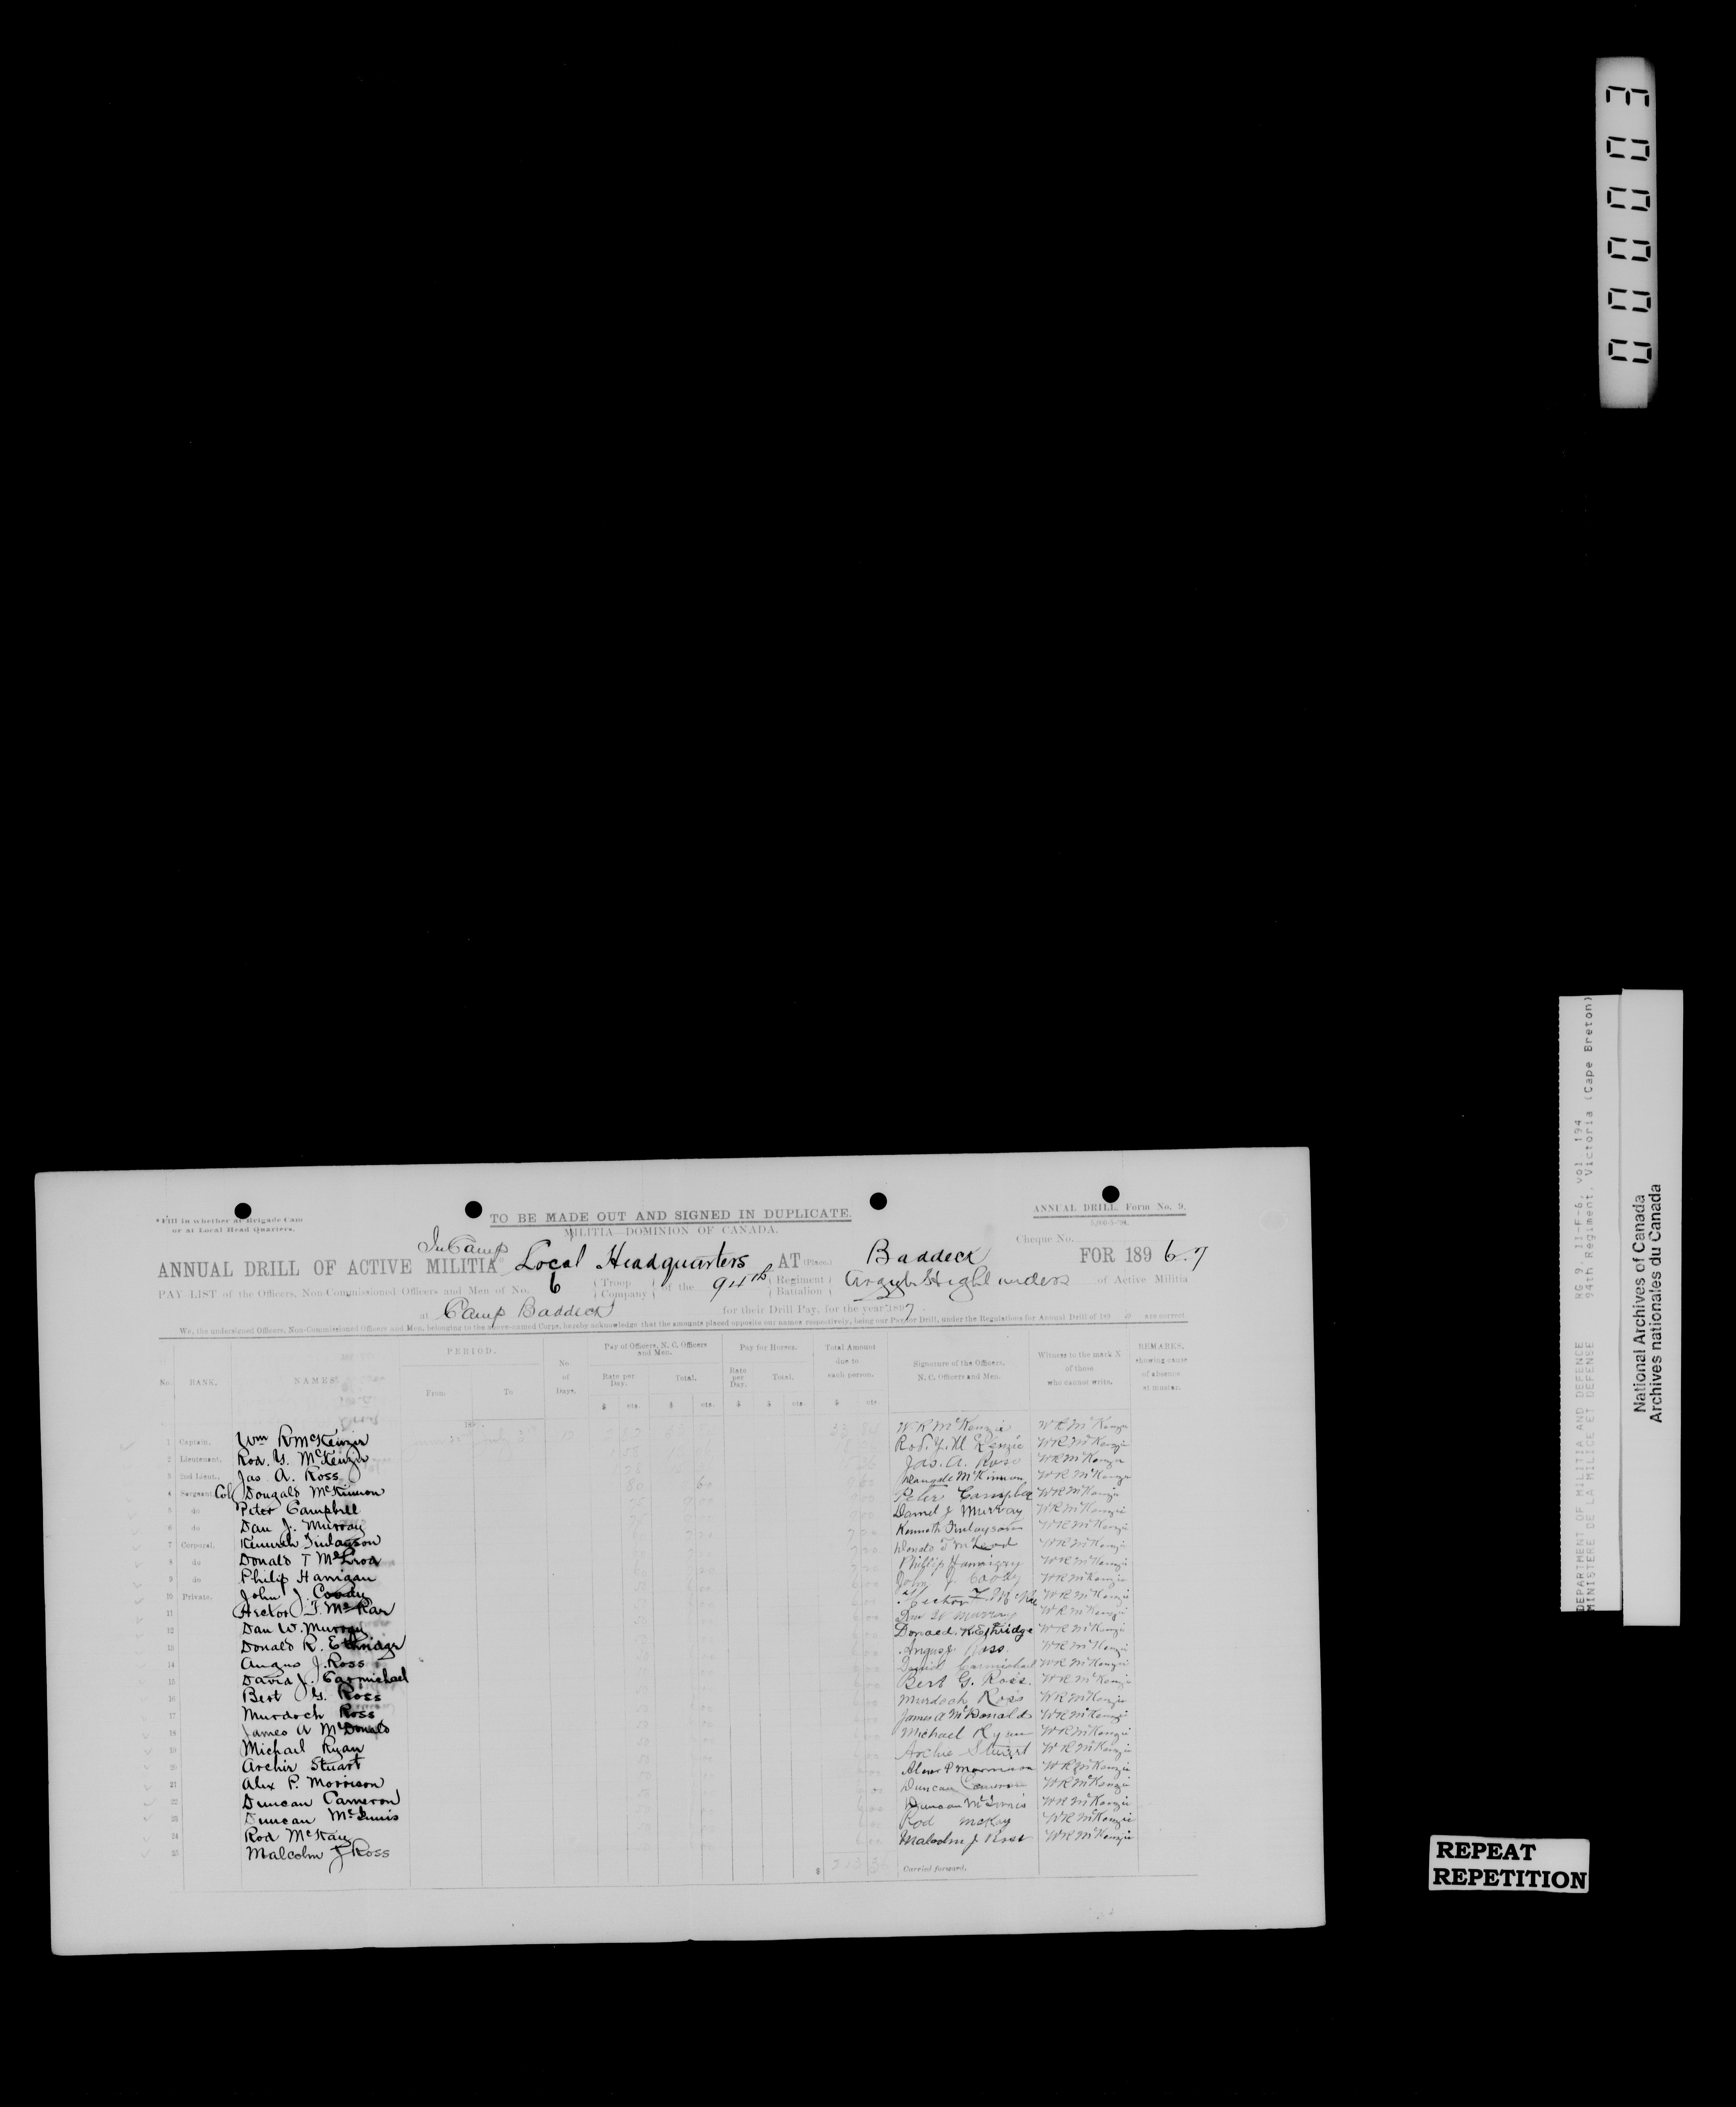 000003
* Fill in whether at Brigade Cam
or at Local Head Quarters.
TO BE MADE OUT AND SIGNED IN DUPLICATE.
ANNUAL DRILL, Form No. 9.
MILITIA DOMINION OF CANADA.
Cheque No.
In Camp
ANNUAL DRILL OF ACTIVE MILITIA Local Headquarters AT (Place.) Baddeck FOR 189 6-7
PAY-LIST of the Officers, Non-Commissioned Officers and Men of No. 6 { Troop Company } of the 94th { Regiment Battalion } Argyle Highlanders of Active Militia
at Camp Baddeck for their Drill Pay, for the year 1897.
We, the undersigned Officers, Non-Commissioned Officers and Men, belonging to the above-named Corps, hereby acknowledge that the amounts placed opposite our names respectively, being our Pay for Drill, under the Regulations for Annual Drill of 189 are correct
No. RANK. NAMES PERIOD. From To No. of Days. Pay of Officers, N. C. Officers and Men. Rate per Day. Total. Pay for Horses. Rate per Day. Total. Total Amount due to each person. Signature of the Officers, N. C. Officers and Men. Witness to the mark X of those who cannot write. REMARKS, showing cause of absence at muster.
$ cts. $ cts. $ $ cts. $ cts.
1 Captain, Wm R McKenzie W R McKenzie W R McKenzie
2 Lieutenant, Rod. Y. McKenzie Rod. Y. McKenzie W R McKenzie
3 2nd Lieut., Jas. A. Ross Jas. A. Ross W R McKenzie
4 Sergeant, Col Dougald McKinnon 80 9 60 Dougald McKinnon W R McKenzie
5 do Peter Campbell Peter Campbell W R McKenzie
6 do Dan J. Murray Daniel J Murray W R McKenzie
7 Corporal, Kenneth Finlayson Kenneth Finlayson W R McKenzie
8 do Donald T McLeod Donald T McLeod W R McKenzie
9 do Philip Hanigan Phillip Hannigan W R McKenzie
10 Private, John J. Coody John J. Coody W R McKenzie
11 Hector F. McRae Hector F. McRae W R McKenzie
12 Dan W. Murray Dan W Murray W R McKenzie
13 Donald R. Ethridge Donald. R. Ethridge W R McKenzie
14 Angus J. Ross Angus J. Ross W R McKenzie
15 David J. Carmichael David Carmichael W R McKenzie
16 Bert G. Ross Bert G. Ross. W R McKenzie
17 Murdoch Ross Murdoch Ross W R McKenzie
18 James A McDonald James A McDonald W R McKenzie
19 Michael Ryan Michael Ryan W R McKenzie
20 Archie Stuart Archie Stuart W R McKenzie
21 Alex P. Morrison Alex P Morrison W R McKenzie
22 Duncan Cameron Duncan Cameron W R McKenzie
23 Duncan McInnis Duncan McInnis W R McKenzie
24 Rod McKay Rod McKay W R McKenzie
25 Malcolm J Ross Malcolm J Ross W R McKenzie
$ Carried forward,
DEPARTMENT OF MILITIA AND DEFENCE RG 9, II-F-6, vol. 194
MINISTERE DE LA MILICE ET DEFENSE 94th Regiment, Victoria (Cape Breton)
National Archives of Canada
Archives nationales du Canada
REPEAT
REPETITION